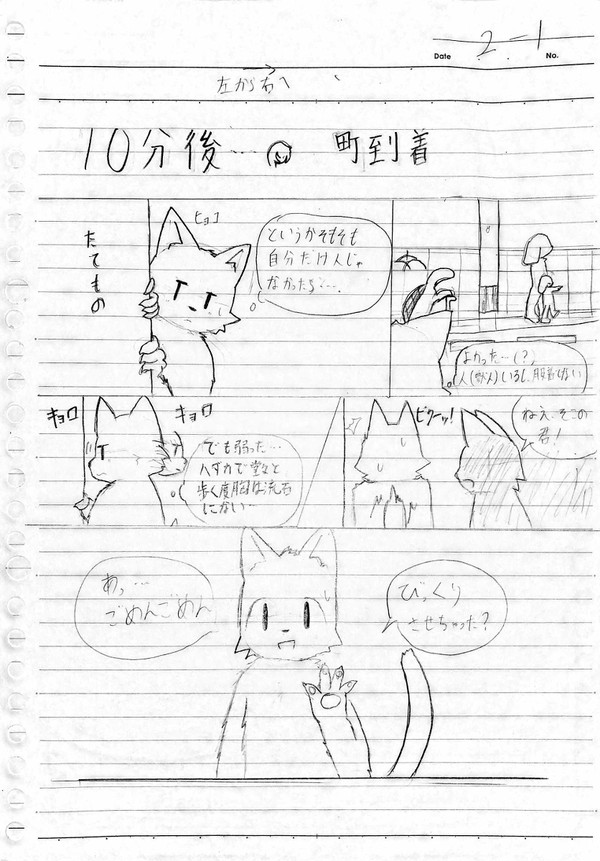 Date 2-1 No.
左から右へ
10分後… 町到着
たてもの
ヒョコ
というかそもそも
自分だけ人じゃ
なかったら…
よかった…(?)
人(獣人)いるし、服着てない
キョロ
キョロ
でも弱った…
ハダカで堂々と
歩く度胸は流石
にない…
ビクーッ!
ねえ、そこの
君!
あっ…
ごめんごめん
びっくり
させちゃった?